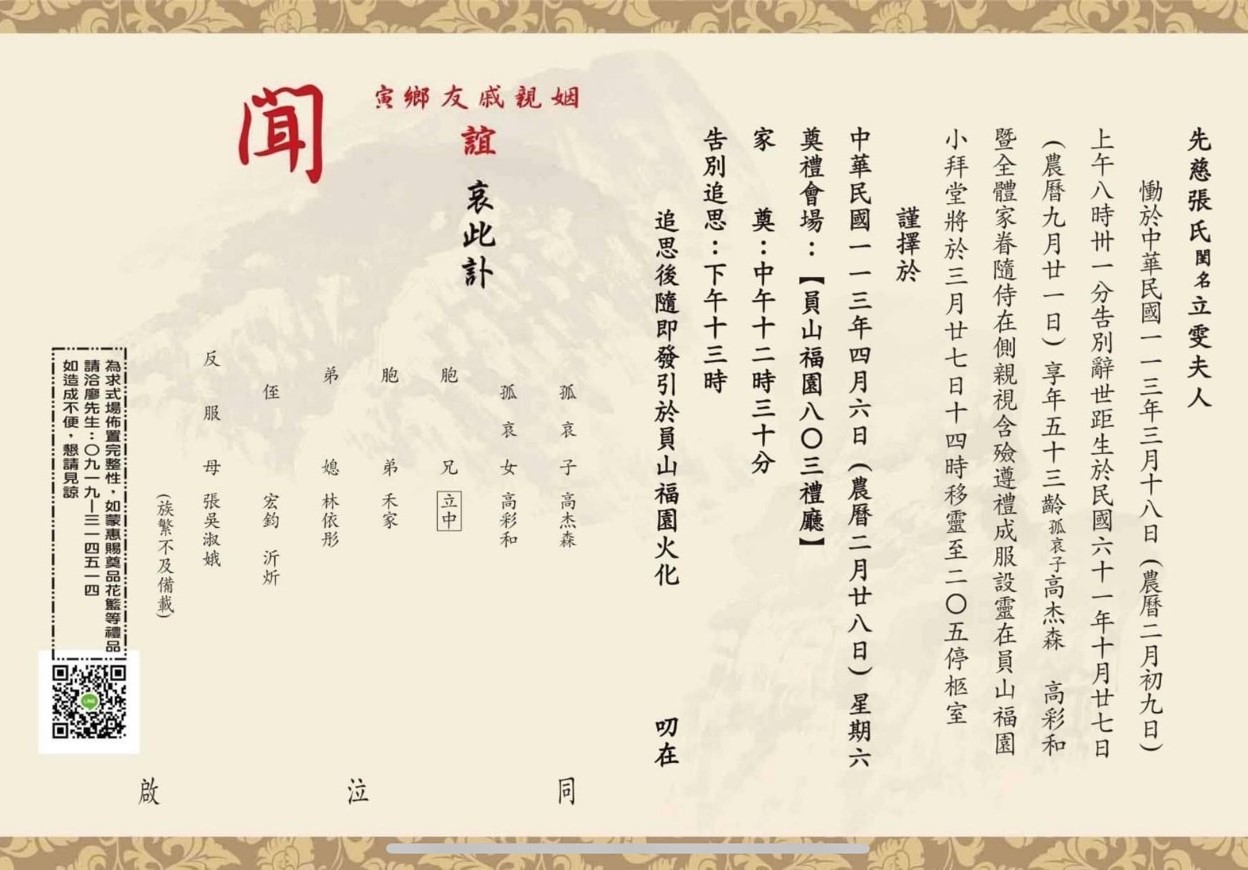 先慈張氏閨名立雯夫人
慟於中華民國一一三年三月十八日(農曆二月初九日)
上午八時卅一分告別辭世距生於民國六十一年十月廿七日
(農曆九月廿一日)享年五十三齡孤哀子高杰森 高彩和
暨全體家眷隨侍在側親視含殮遵禮成服設靈在員山福園
小拜堂將於三月廿七日十四時移靈至二〇五停柩室
謹擇於
中華民國一一三年四月六日(農曆二月廿八日)星期六
奠禮會場:【員山福園八〇三禮廳】
家 奠:中午十二時三十分
告別追思:下午十三時
追思後隨即發引於員山福園火化 叨在
姻親戚友鄉寅
誼 哀此訃
聞
孤哀子 高杰森
孤哀女 高彩和
胞兄 立中
胞弟 禾家
弟媳 林依彤
侄 宏鈞 沂炘
反服母 張吳淑娥
(族繁不及備載)
同 泣 啟
為求式場佈置完整性,如蒙惠賜奠品花籃等禮品
請洽廖先生:〇九一九-三一四五一四
如造成不便,懇請見諒
LINE